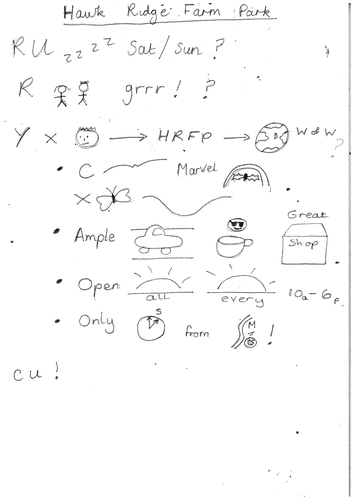 Hawk Ridge Farm Park
RU zzzz Sat/Sun ?
R grrr ! ?
Y x HRFP WofW ?
C Marvel
x
Great
Ample Shop
Open all every 10a-6p
Only 5 from M !
CU !